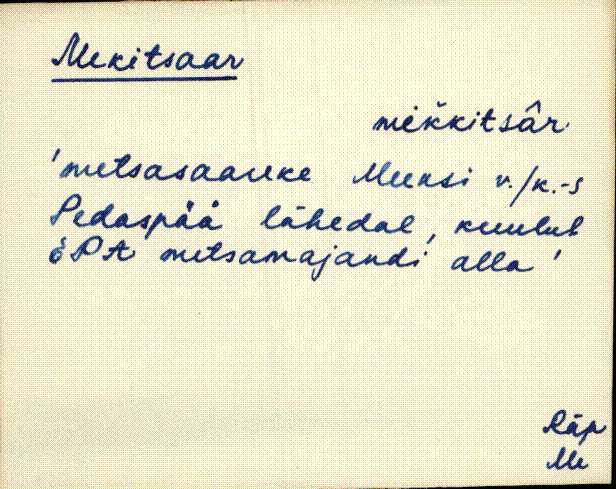 Mekitsaar
mek̆kitsâr
'metsasaareke Meeksi v./k.-s
Pedaspää lähedal, kuulub
EPA metsamajandi alla'
Räp
Me